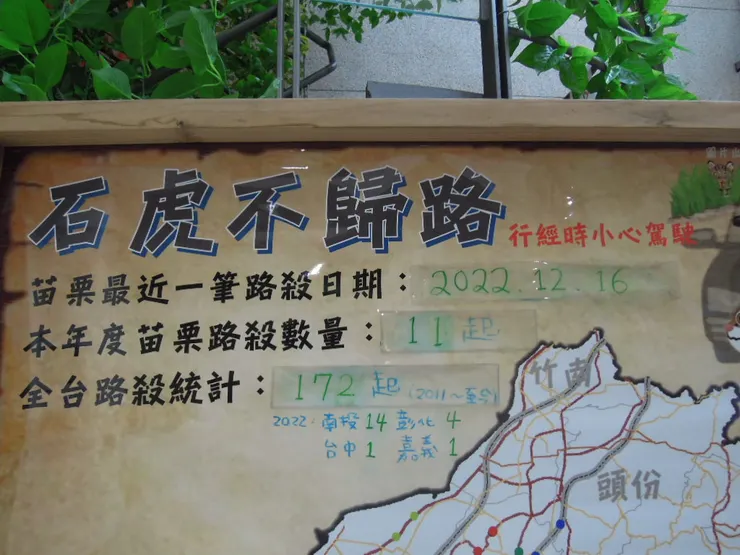 石虎不歸路 行經時小心駕駛
苗栗最近一筆路殺日期：2022.12.16
本年度苗栗路殺數量：11起
全台路殺統計：172起(2011～至今)
2022：南投14 彰化4
台中1 嘉義1
竹南
頭份